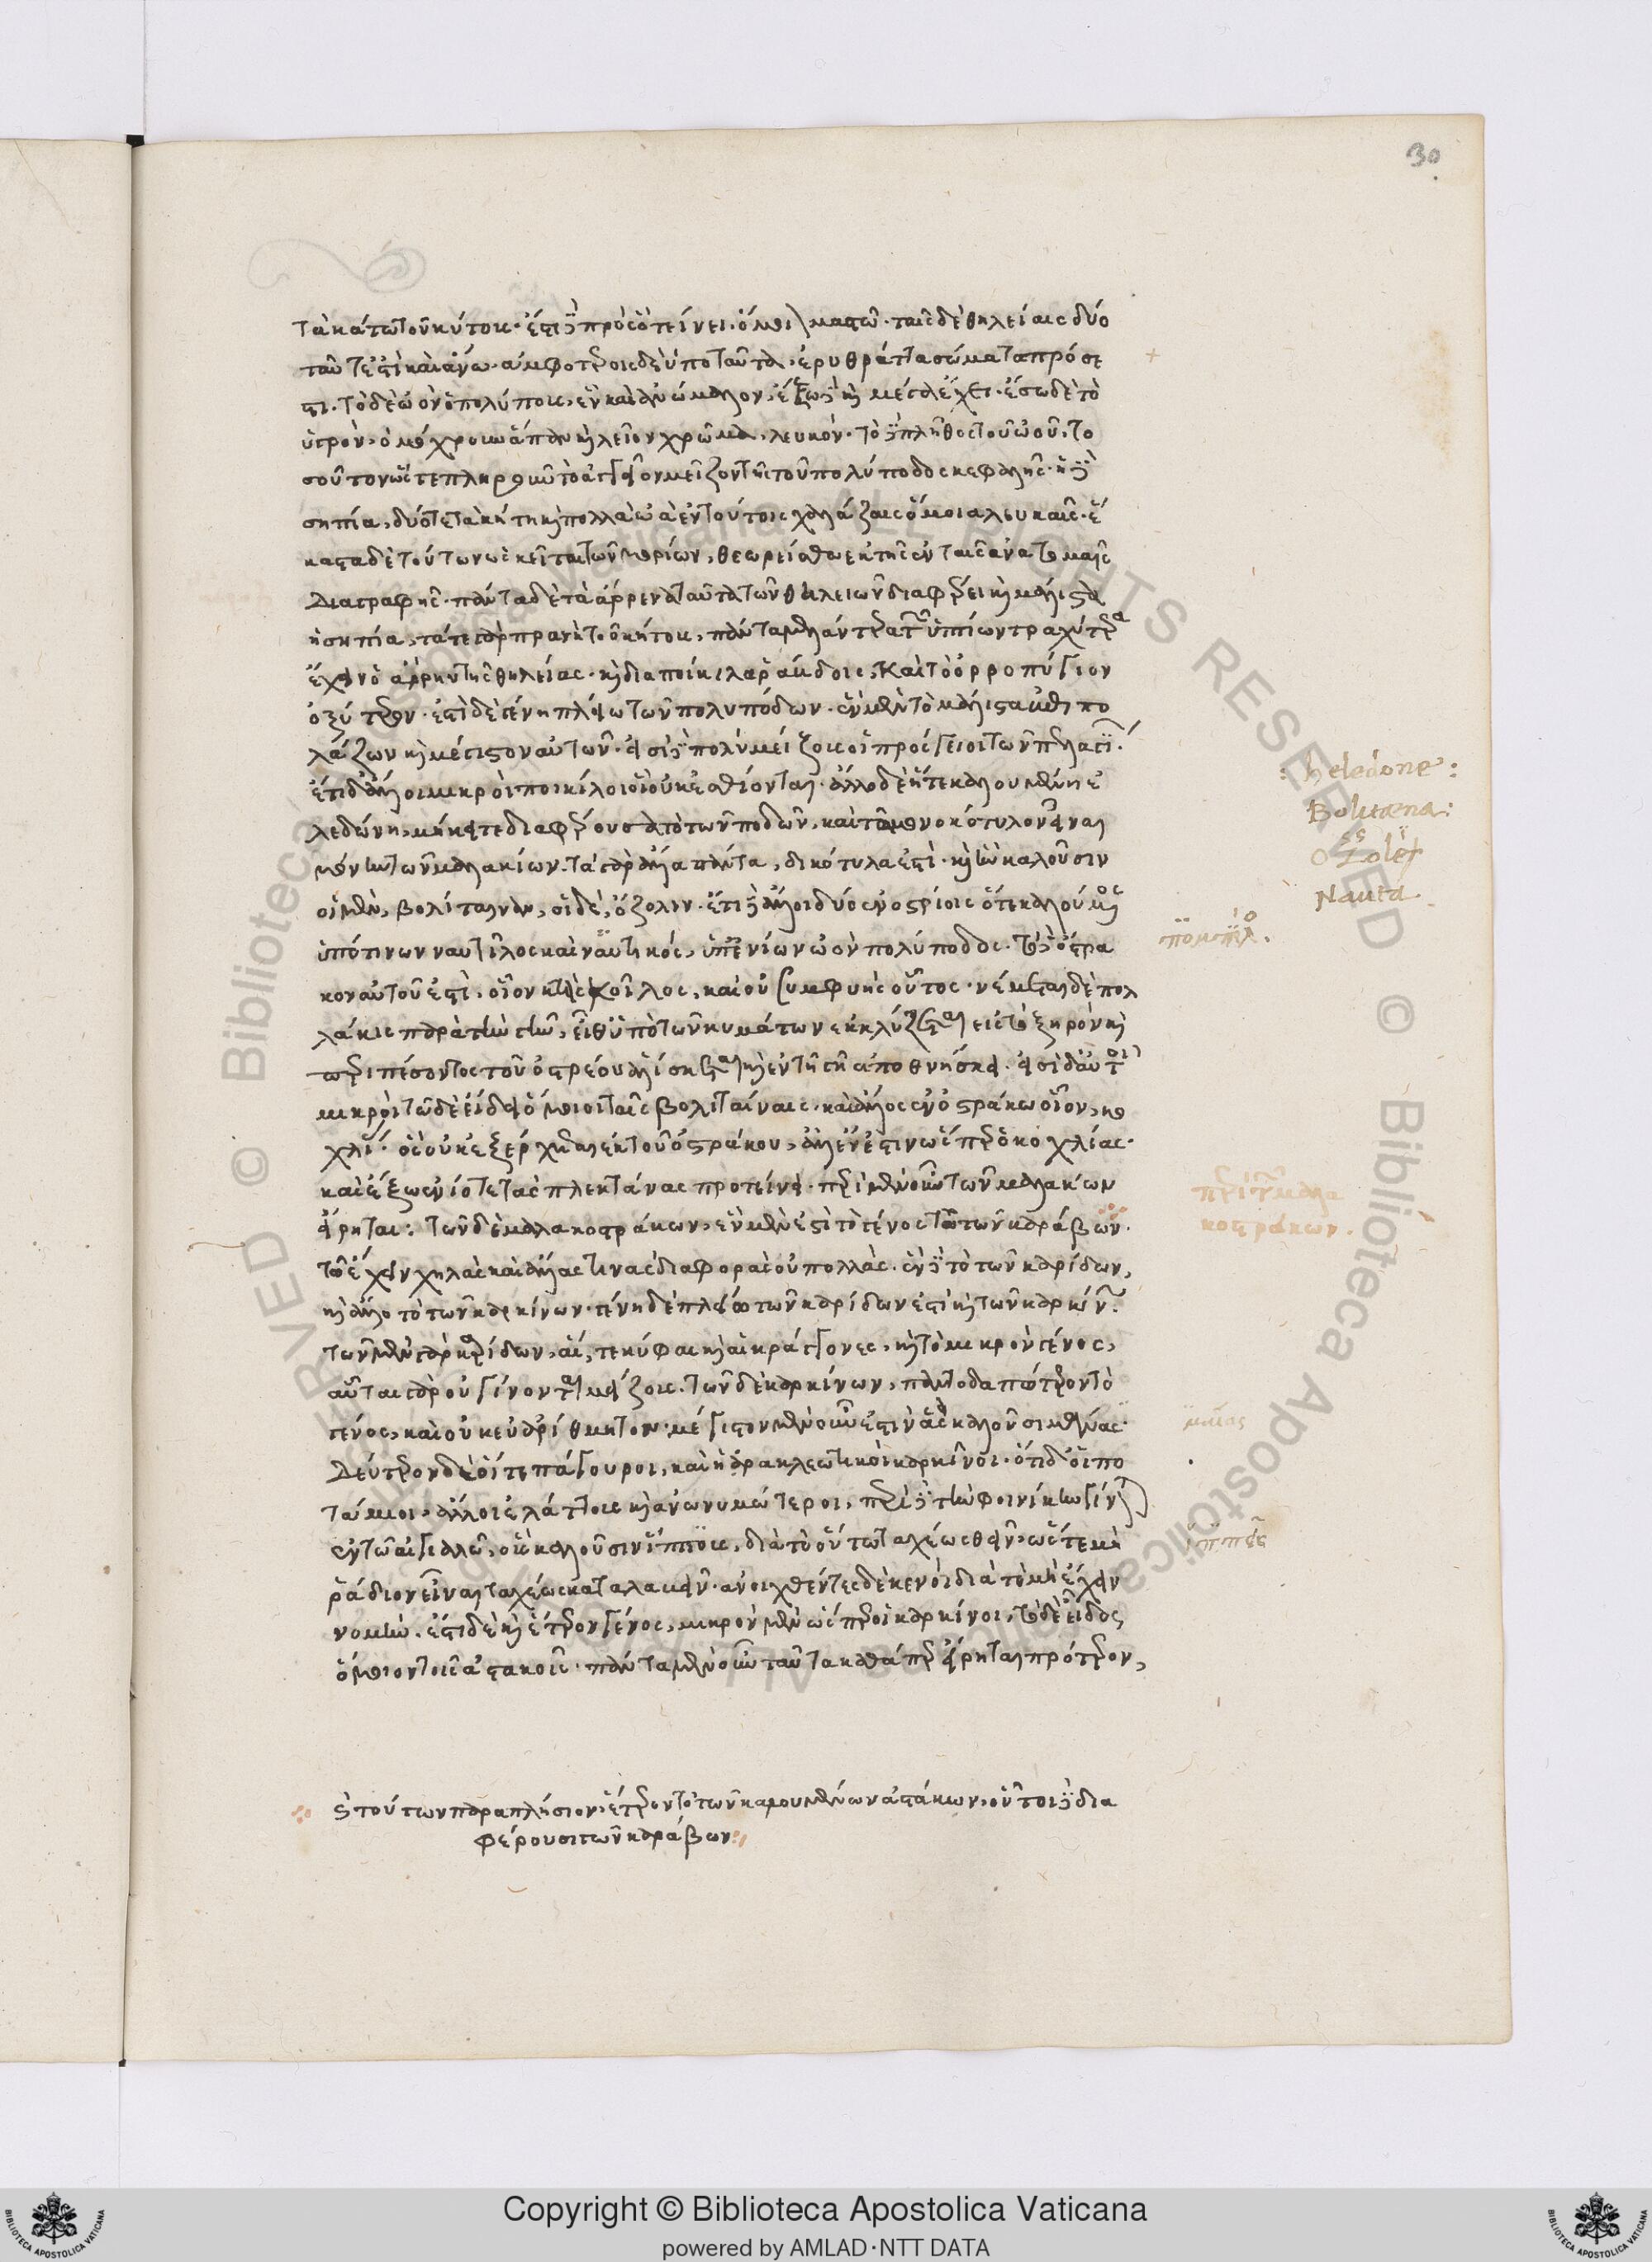 τὰ κάτω τοῦ κύτους· ἔστι δὲ πρὸς ὃ τείνει, ὅμοιον μαστῶ· ταῖς δὲ θηλείαις δύο
ταῦτ' ἐστὶ καὶ ἄνω· ἀμφοτέροις δὲ ὑπὸ ταῦτα, ἐρυθρά ττα σώματα πρόσε
στι. τὸ δὲ ὠὸν ὁ πολύπους, ἓν καὶ ἀνώμαλον, ἔξωθεν καὶ μέγα ἔχει· ἔσω δὲ τὸ
ὑγρὸν, ὁμόχρουν ἅπαν καὶ λεῖον χρῶμα, λευκόν· τὸ δὲ πλῆθος τοῦ ὠοῦ, το
σοῦτον ὥστε πληροῦν τὸ ἀγγεῖον μεῖζον τῆς τοῦ πολύποδος κεφαλῆς· ἡ δὲ
σηπία, δύο τε τὰ κύτη καὶ πολλὰ ὠὰ ἐν τούτοις χαλάζαις ὅμοια λευκαῖς· ἕ
καστα δὲ τούτων ὡς κεῖται τῶν μορίων, θεωρείσθω ἐκ τῆς ἐν ταῖς ἀνατομαῖς
διαγραφῆς· πάντα δὲ τὰ ἄρρενα ταῦτα τῶν θηλειῶν διαφέρει καὶ μάλιστα
ἡ σηπία, τά τε γὰρ πρανῆ τοῦ κύτους, πάντα μελάντερα τῶν ὑπτίων τραχύτερα
ἔχει ὁ ἄρρην τῆς θηλείας· καὶ διαποίκιλα ῥάβδοις, καὶ τὸ ὀρροπύγιον
ὀξύτερον· ἐστὶ δὲ γένη πλείω τῶν πολυπόδων· ἓν μὲν τὸ μάλιστα ἐπιπο
λάζων καὶ μέγιστον αὐτῶν· εἰσὶ δὲ πολὺ μείζους οἱ πρόσγειοι τῶν πελαγίων·
ἔτι δ' ἄλλοι μικροὶ ποικίλοι οἳ οὐκ ἐσθίονται· ἄλλο δὲ ἥ τε καλουμένη ἐ
λεδώνη, μήκει τε διαφέρουσα τὸ τῶν ποδῶν, καὶ τῶ μονοκότυλον εἶναι
μόνην τῶν μαλακίων. τὰ γὰρ ἄλλα πάντα, δικότυλα ἐστὶ· καὶ ἣν καλοῦσιν
οἱ μὲν, βολίταιναν, οἱ δὲ, ὄζολιν· ἔτι δὲ ἄλλοι δύο ἐν ὀστρίοις ὅ τε καλούμενος
ὑπό τινων ναυτίλος καὶ ναυτικός, ὑπ' ἐνίων ὠὸν πολύποδος· τὸ δὲ ὄστρα
κον αὐτοῦ ἐστὶ, οἷον κτεὶς κοῖλος, καὶ οὐ συμφυὴς οὗτος· νέμεται δὲ πολ
λάκις παρὰ τὴν γῆν, εἶθ' ὑπὸ τῶν κυμάτων ἐκκλύζεται εἰς τὸ ξηρόν καὶ
περιπέσοντος τοῦ ὀστρέου ἁλίσκεται καὶ ἐν τῇ γῇ ἀποθνήσκει· εἰσὶ δ' αὐτοὶ
μικροὶ τῶ δὲ εἴδει ὅμοιοι ταῖς βολιταίναις· καὶ ἄλλος ἐν ὀστράκω οἷον, κο
χλίας· ὃς οὐκ ἐξέρχεται ἐκ τοῦ ὀστράκου, ἀλλ' ἔνεστιν ὥσπερ ὁ κοχλίας·
καὶ ἔξω ἐνίοτε τὰς πλεκτάνας προτείνει· περὶ μὲν οὖν τῶν μαλακίων
εἴρηται: τῶν δὲ μαλακοστράκων, ἓν μὲν ἐστὶ τὸ γένος τὸ τῶν καράβων·
τῶ ἔχειν χηλὰς καὶ ἄλλας τινας διαφορὰς οὐ πολλάς· ἓν δὲ τὸ τῶν καρίδων,
καὶ ἄλλο τὸ τῶν καρκίνων· γένη δὲ πλείω τῶν καρίδων ἐστὶ καὶ τῶν καρκίνων·
τῶν μὲν γὰρ καρίδων, αἵ, τε κύφαι καὶ αἱ κράγγονες, καὶ τὸ μικρὸν γένος,
αὗται γὰρ οὐ γίνονται μείζους. τῶν δὲ καρκίνων, παντοδαπώτερον τὸ
γένος, καὶ οὐκ εὐαρίθμητον· μέγιστον μὲν οὖν ἐστὶν ἃς καλοῦσι μαίας·
δεύτερον δὲ οἵ τε πάγουροι, καὶ ἡρακλεωτικοὶ καρκῖνοι· ἔτι δ' οἱ πο
τάμιοι, ἄλλοι ἐλάττους καὶ ἀνωνυμώτεροι, περὶ δὲ τὴν φοινίκην γίνονται
ἐν τῶ αἰγιαλῶ, οὓς καλοῦσιν ἵππους, διὰ τὸ οὕτω ταχέως θεῖν, ὥστε μὴ
ῥάδιον εἶναι ταχέως καταλαβεῖν· ἀνοιχθέντες δὲ κενοὶ διὰ τὸ μὴ ἔχειν
νομήν. ἔστι δὲ καὶ ἕτερον γένος, μικρὸν μὲν ὥσπερ οἱ καρκίνοι, τὸ δὲ εἶδος
ὅμοιον τοῖς ἀστακοῖς· πάντα μὲν οὖν ταῦτα καθάπερ εἴρηται πρότερον,
καὶ τούτων παραπλήσιον, ἕτερον τὸ τῶν καλουμένων ἀστάκων, οὗτοι δὲ δια
φέρουσι τῶν καράβων
30
: heledone :
Bolitaena :
ὄζολις
Nauta
πομπίλος.
περὶ τῶν μαλα
κοστράκων.
μαίας
ἵππεῖς
© Biblioteca Apostolica Vaticana ALL RIGHTS RESERVED
Copyright © Biblioteca Apostolica Vaticana
powered by AMLAD·NTT DATA
BIBLIOTECA APOSTOLICA VATICANA